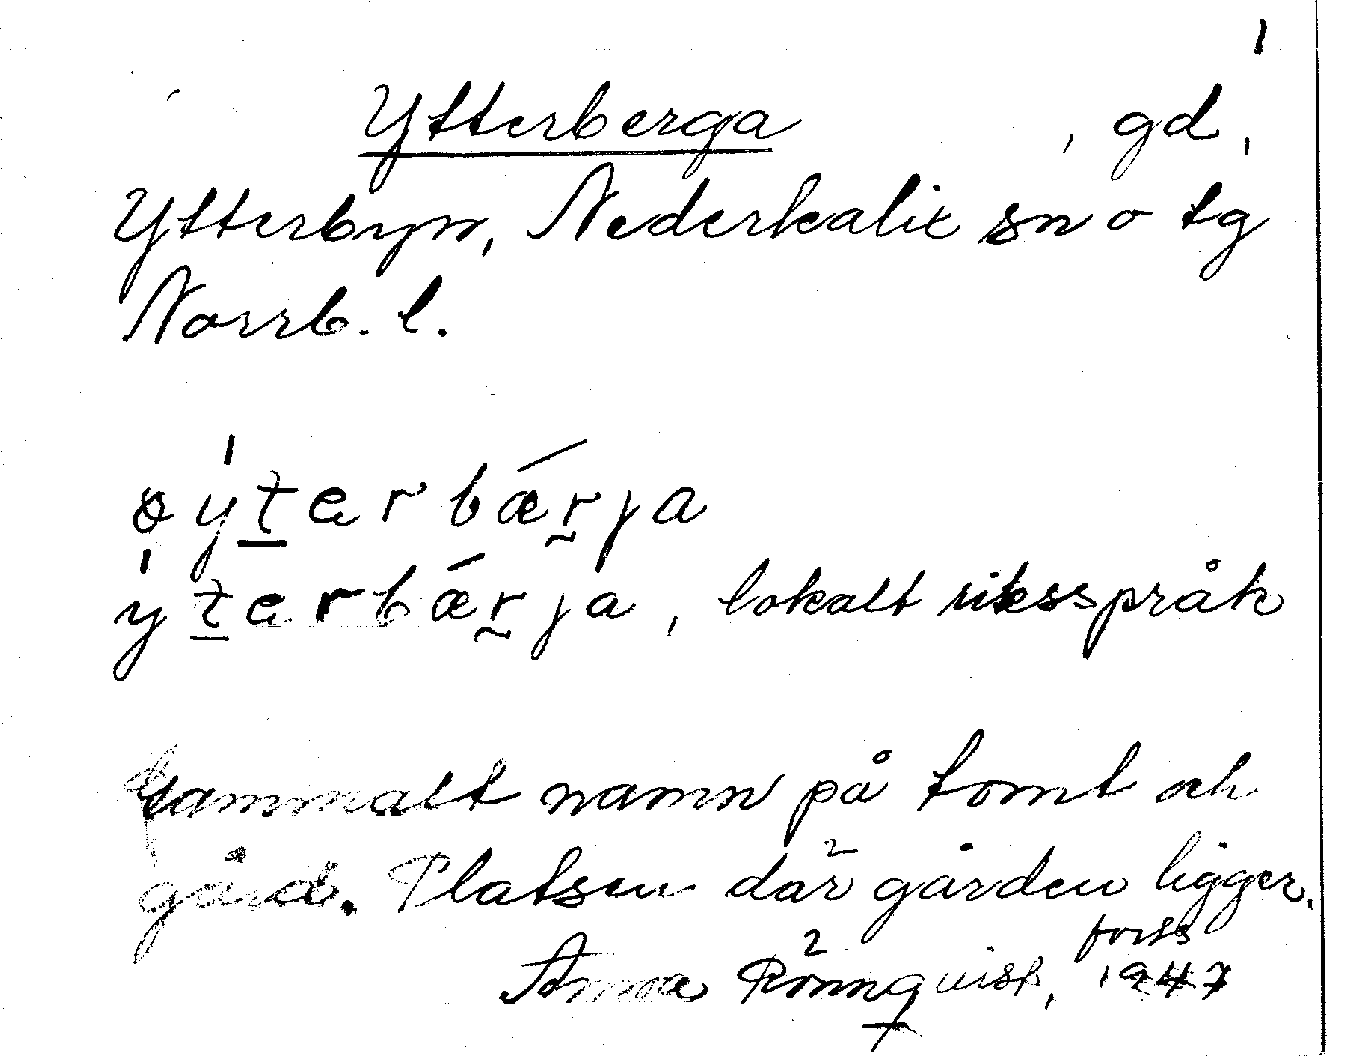 1
Ytterberga, gd,
Ytterbyn, Nederkalix sn o tg
Norrb. l.
øyterbærja
yterbærja, lokalt riksspråk
Gammalt namn på tomt och
gård. Platsen där gården ligger.
forts
Anna Rönnqvist, 1947